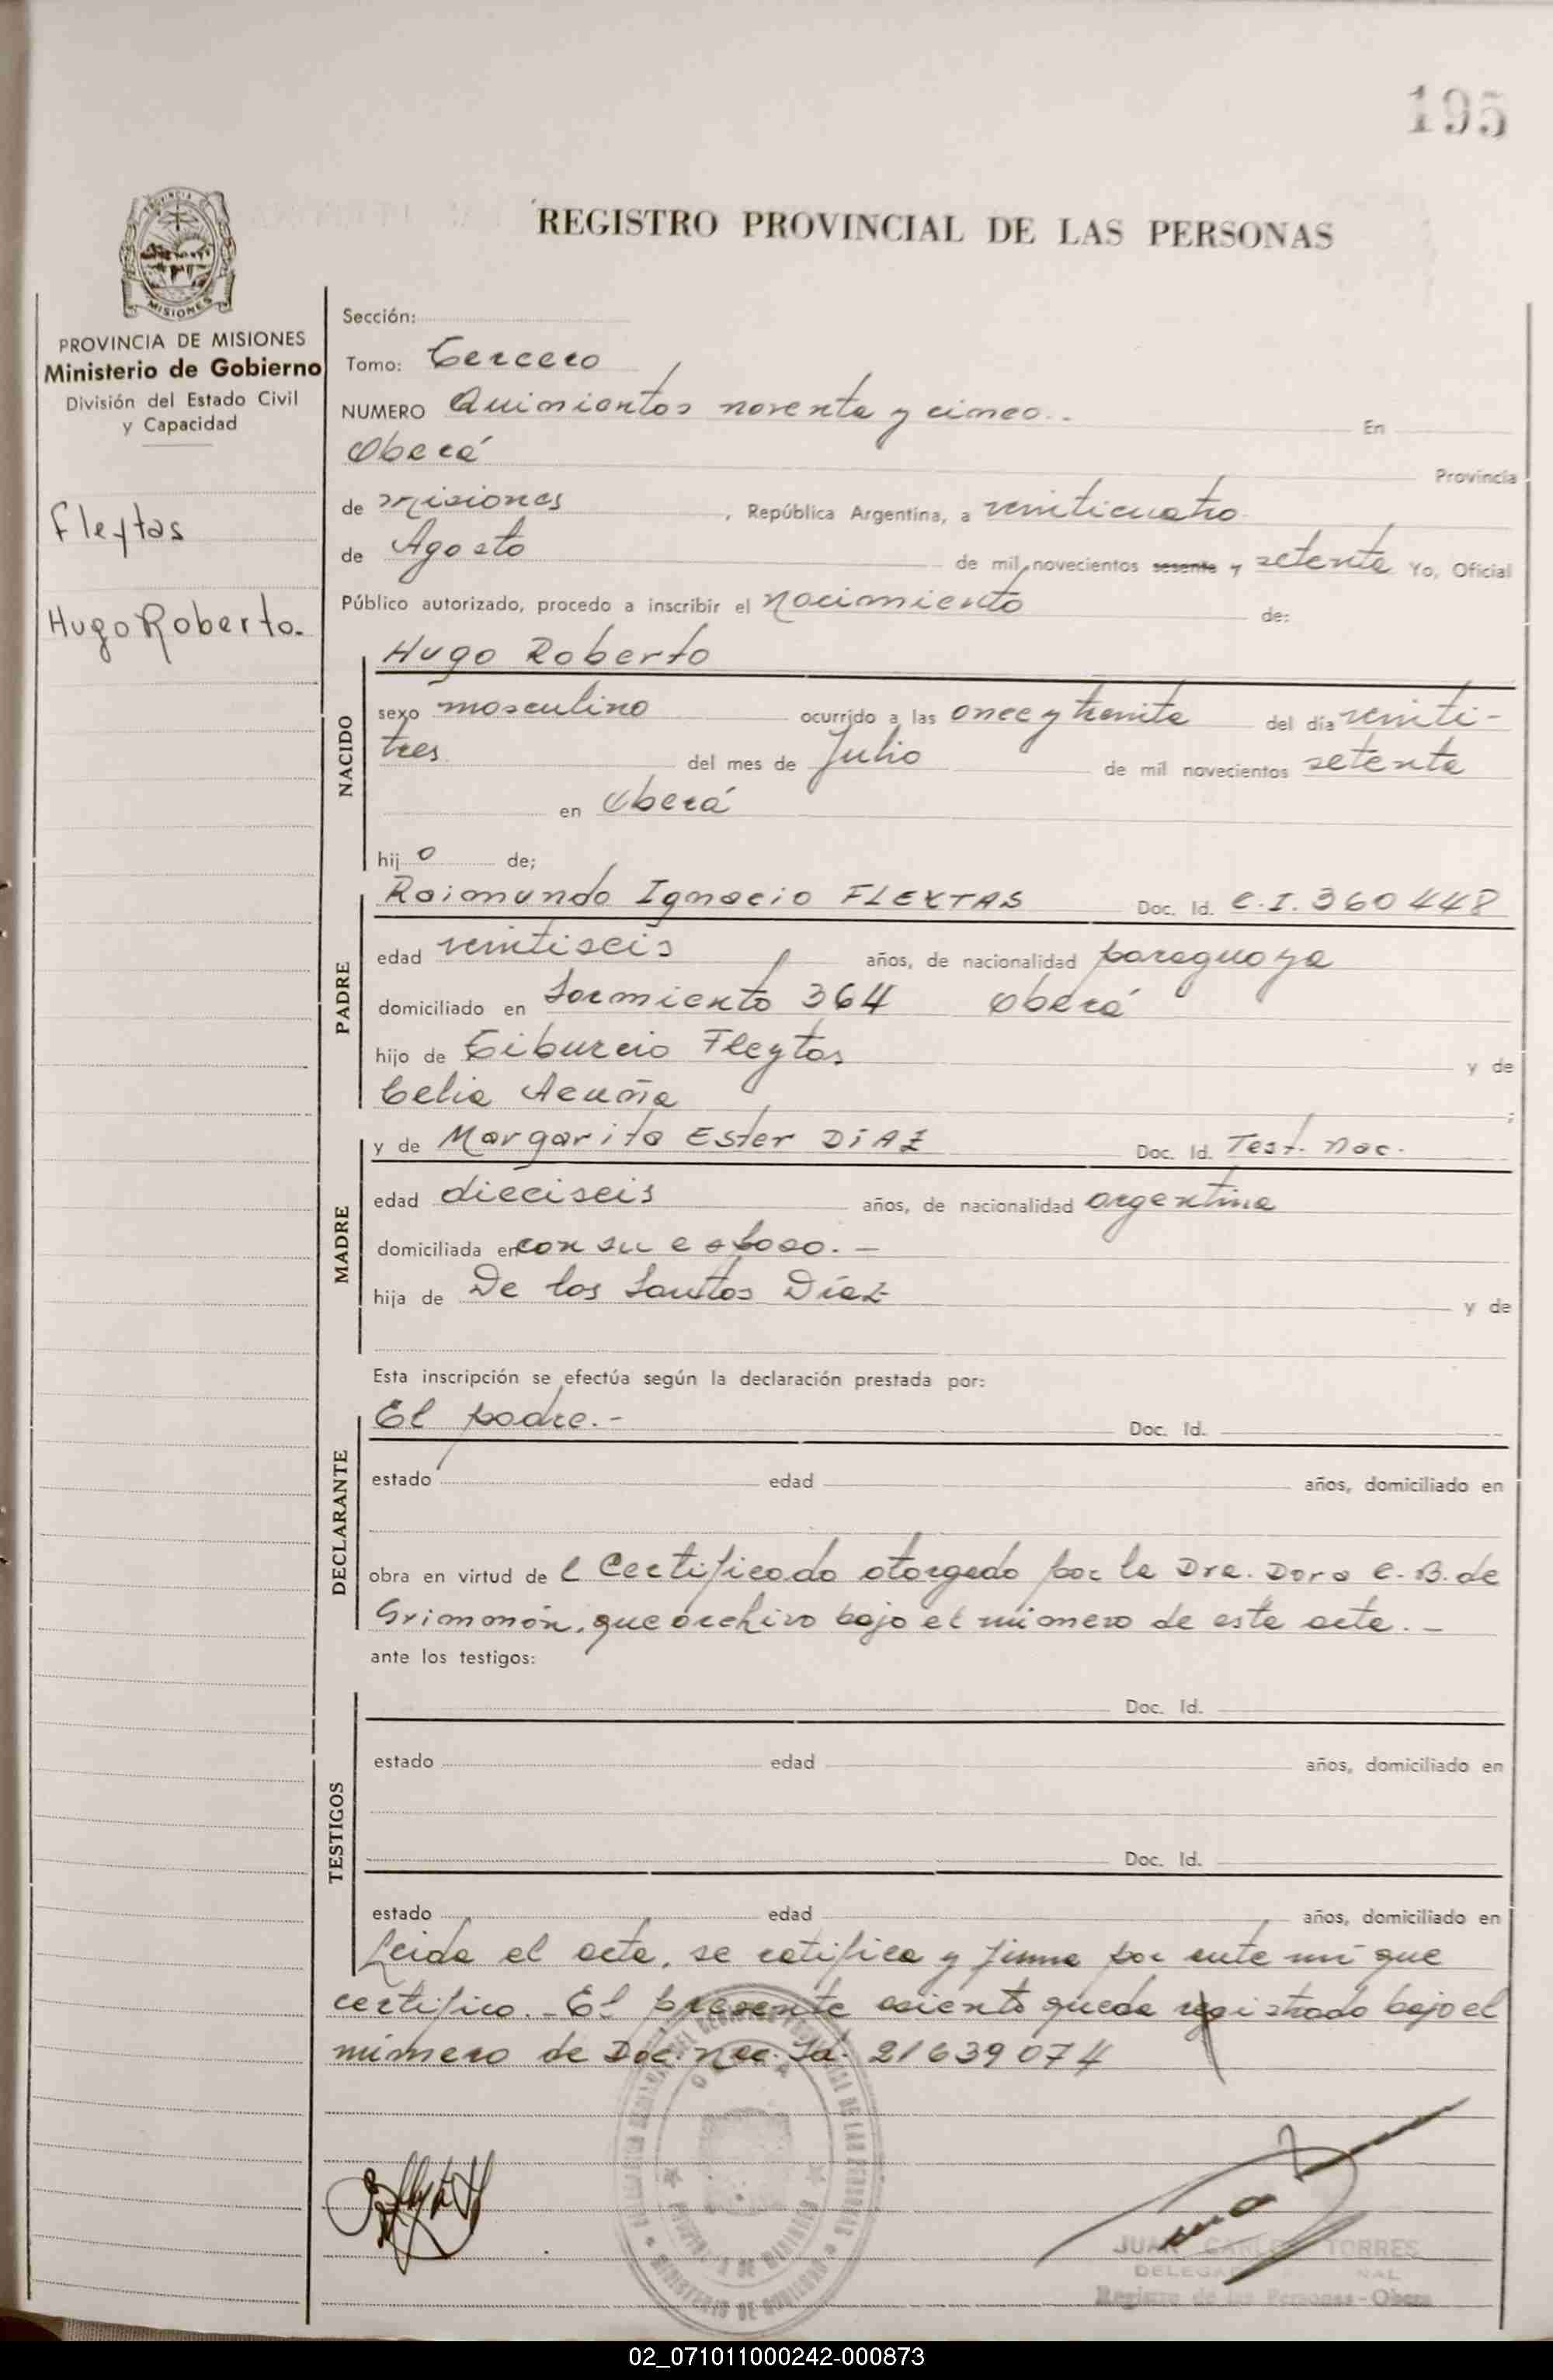 195
REGISTRO PROVINCIAL DE LAS PERSONAS
PROVINCIA DE MISIONES
Ministerio de Gobierno
División del Estado Civil
y Capacidad
Fleytas
Hugo Roberto.
Sección:
Tomo: Tercero
NUMERO Quinientos noventa y cinco.. En
Oberá Provincia
de Misiones, República Argentina, a veinticuatro
de Agosto de mil novecientos sesenta y setenta Yo, Oficial
Público autorizado, procedo a inscribir el nacimiento de:
NACIDO
Hugo Roberto
sexo masculino ocurrido a las once y treinta del día veinti-
tres del mes de Julio de mil novecientos setenta
en Oberá
hijo de;
PADRE
Raimundo Ignacio FLEYTAS Doc. Id. C.I. 360448
edad veintiseis años, de nacionalidad paraguaya
domiciliado en Sarmiento 364 Oberá
hijo de Tiburcio Fleytas y de
Celia Acuña ;
MADRE
y de Margarita Ester DíAZ Doc. Id. Test. Nac.
edad dieciseis años, de nacionalidad argentina
domiciliada en con su esposo. -
hija de De los Santos Díaz y de
DECLARANTE
Esta inscripción se efectúa según la declaración prestada por:
El padre.- Doc. Id.
estado edad años, domiciliado en
obra en virtud de l Certificado otorgado por la Dra. Dora C. B. de
Grimonón, que archivo bajo el número de este acta. -
ante los testigos:
TESTIGOS
Doc. Id.
estado edad años, domiciliado en
Doc. Id.
estado edad años, domiciliado en
Leida el acta, se ratifica y firma por ante mí que
certifico. - El presente asiento queda registrado bajo el
número de Doc. Nac. Id. 21639074
JUAN CARLOS TORRES
Registro de las Personas - Obera
02_071011000242-000873